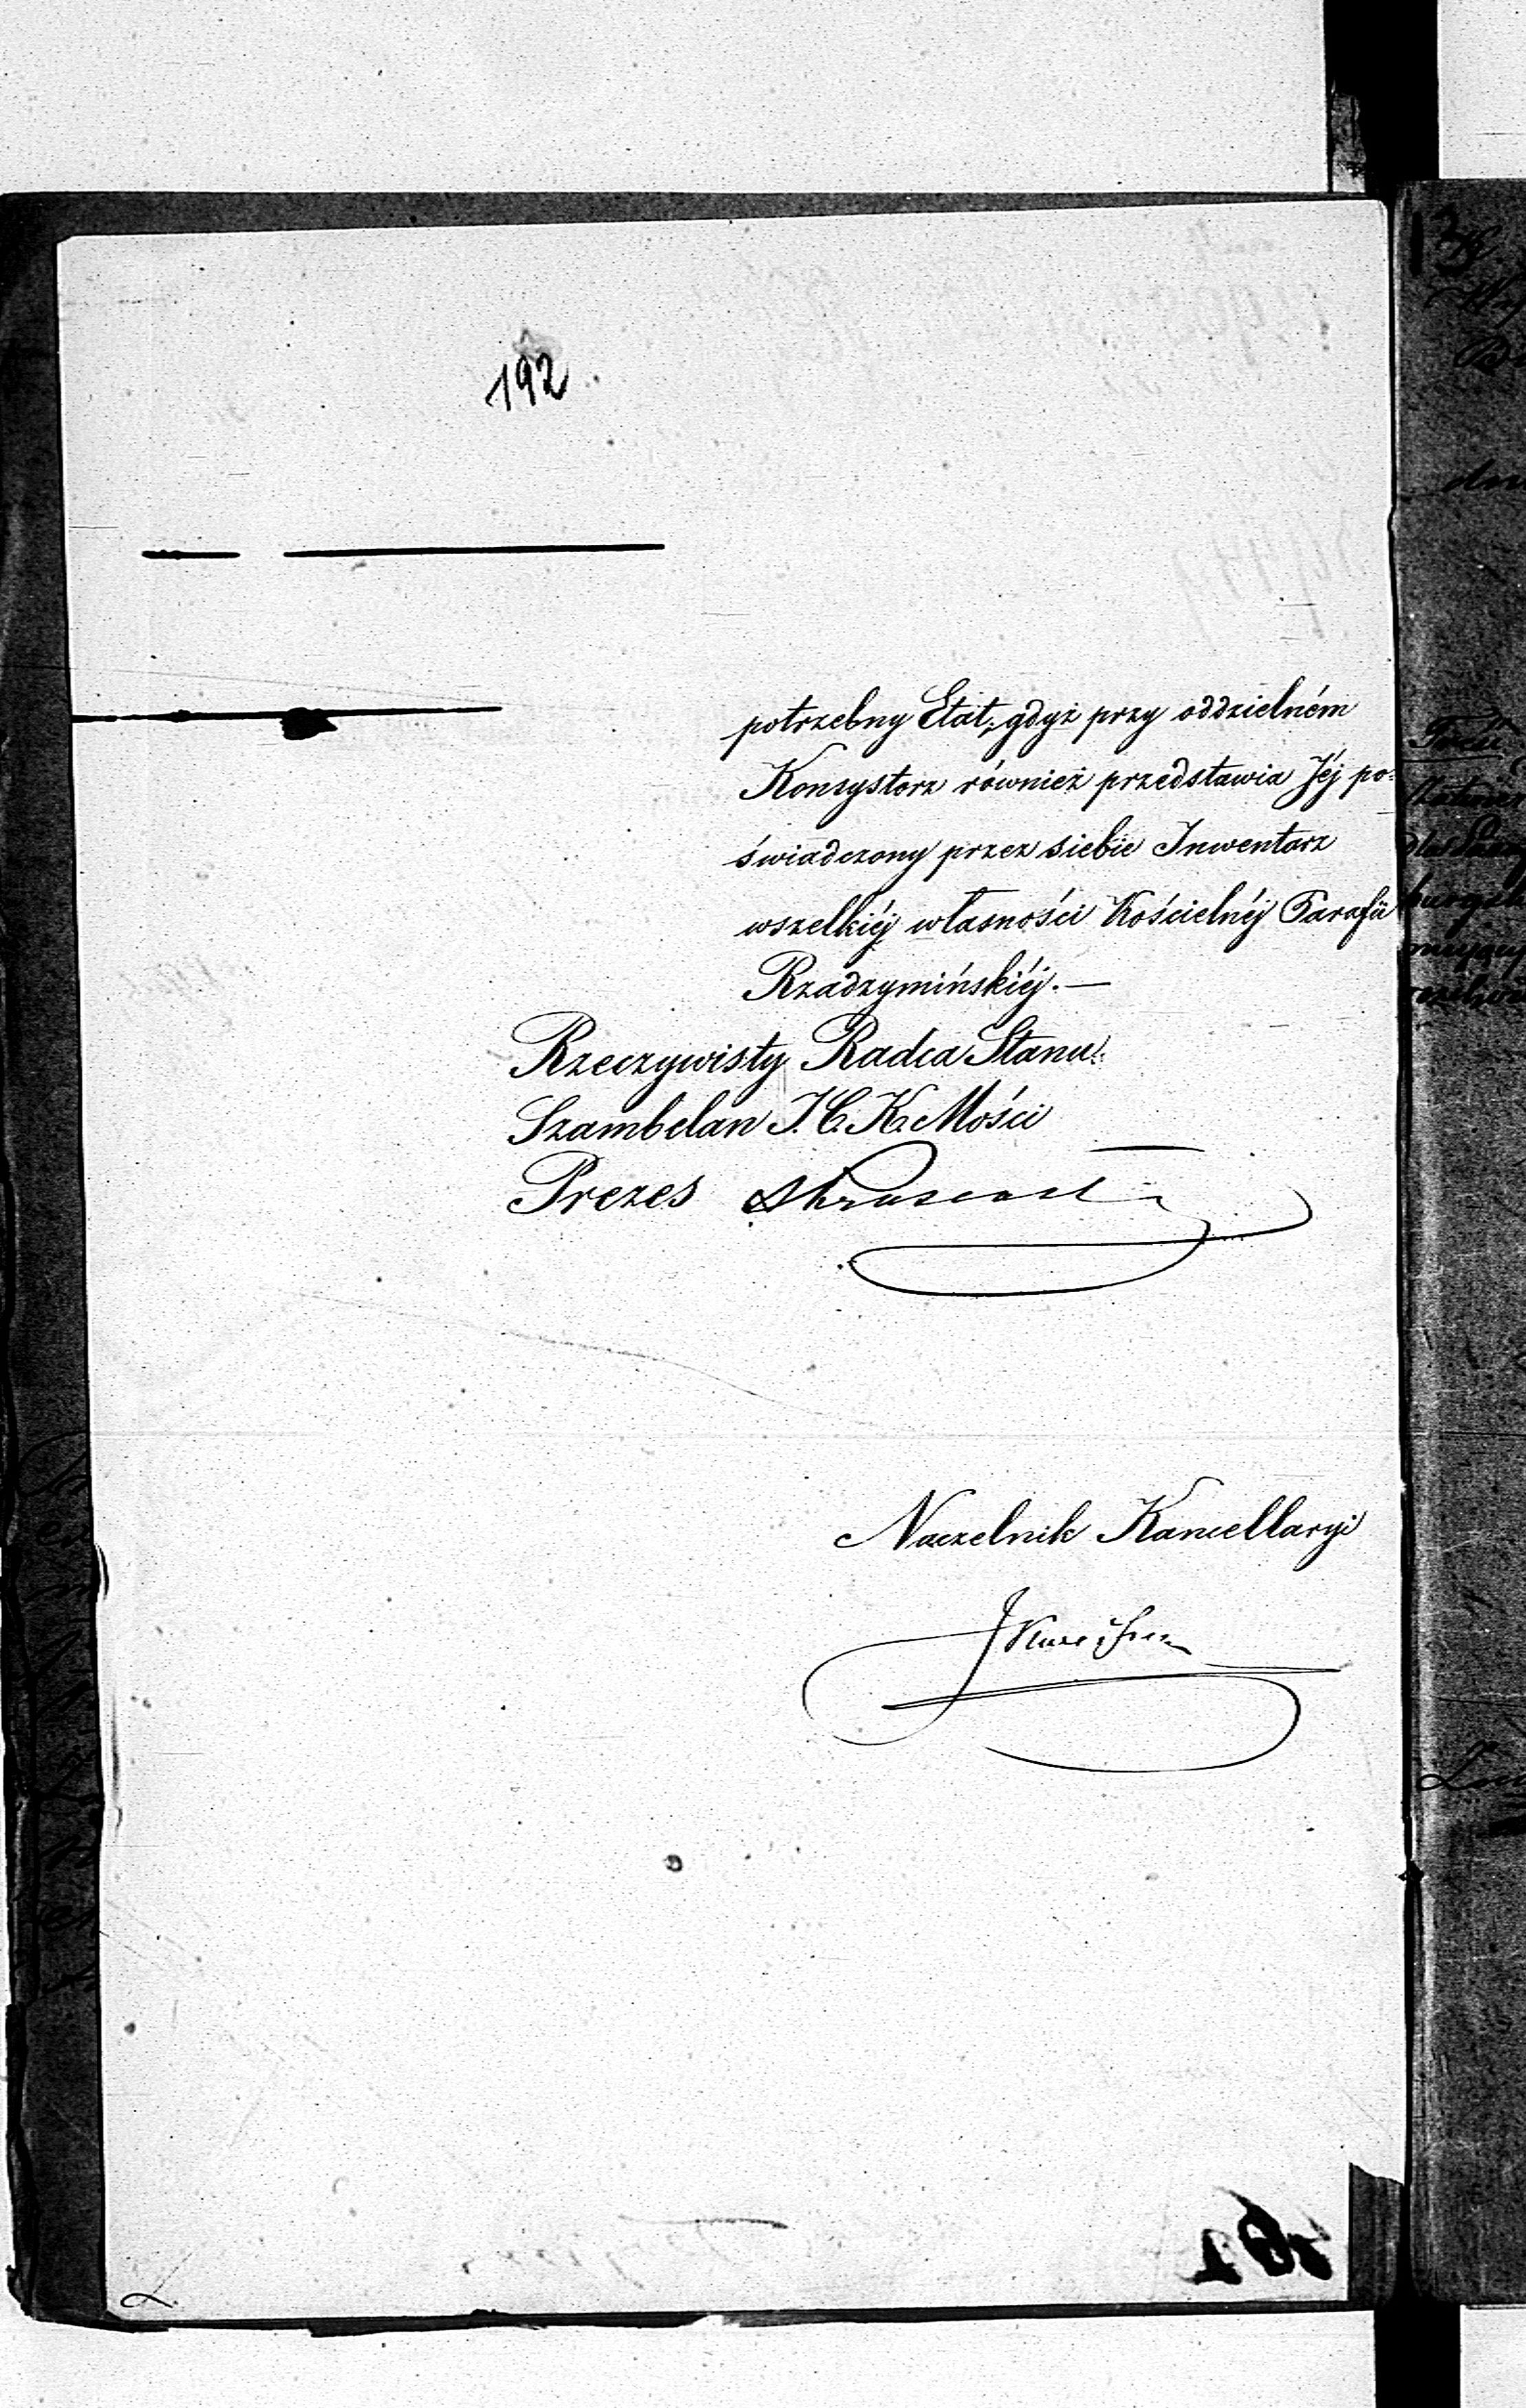 192.
potrzebny Etat, gdyż przy oddzielném
Konsystorz również przedstawia Jéj po-
świadczony przez siebie Inwentarz
wszelkiéj własności Kościelnéj Parafii
Rzadzymińskiéj.—
Rzeczywisty Radca Stanu.
Szambelan J. C. K. Mości
Prezes
Naczelnik Kancellaryi